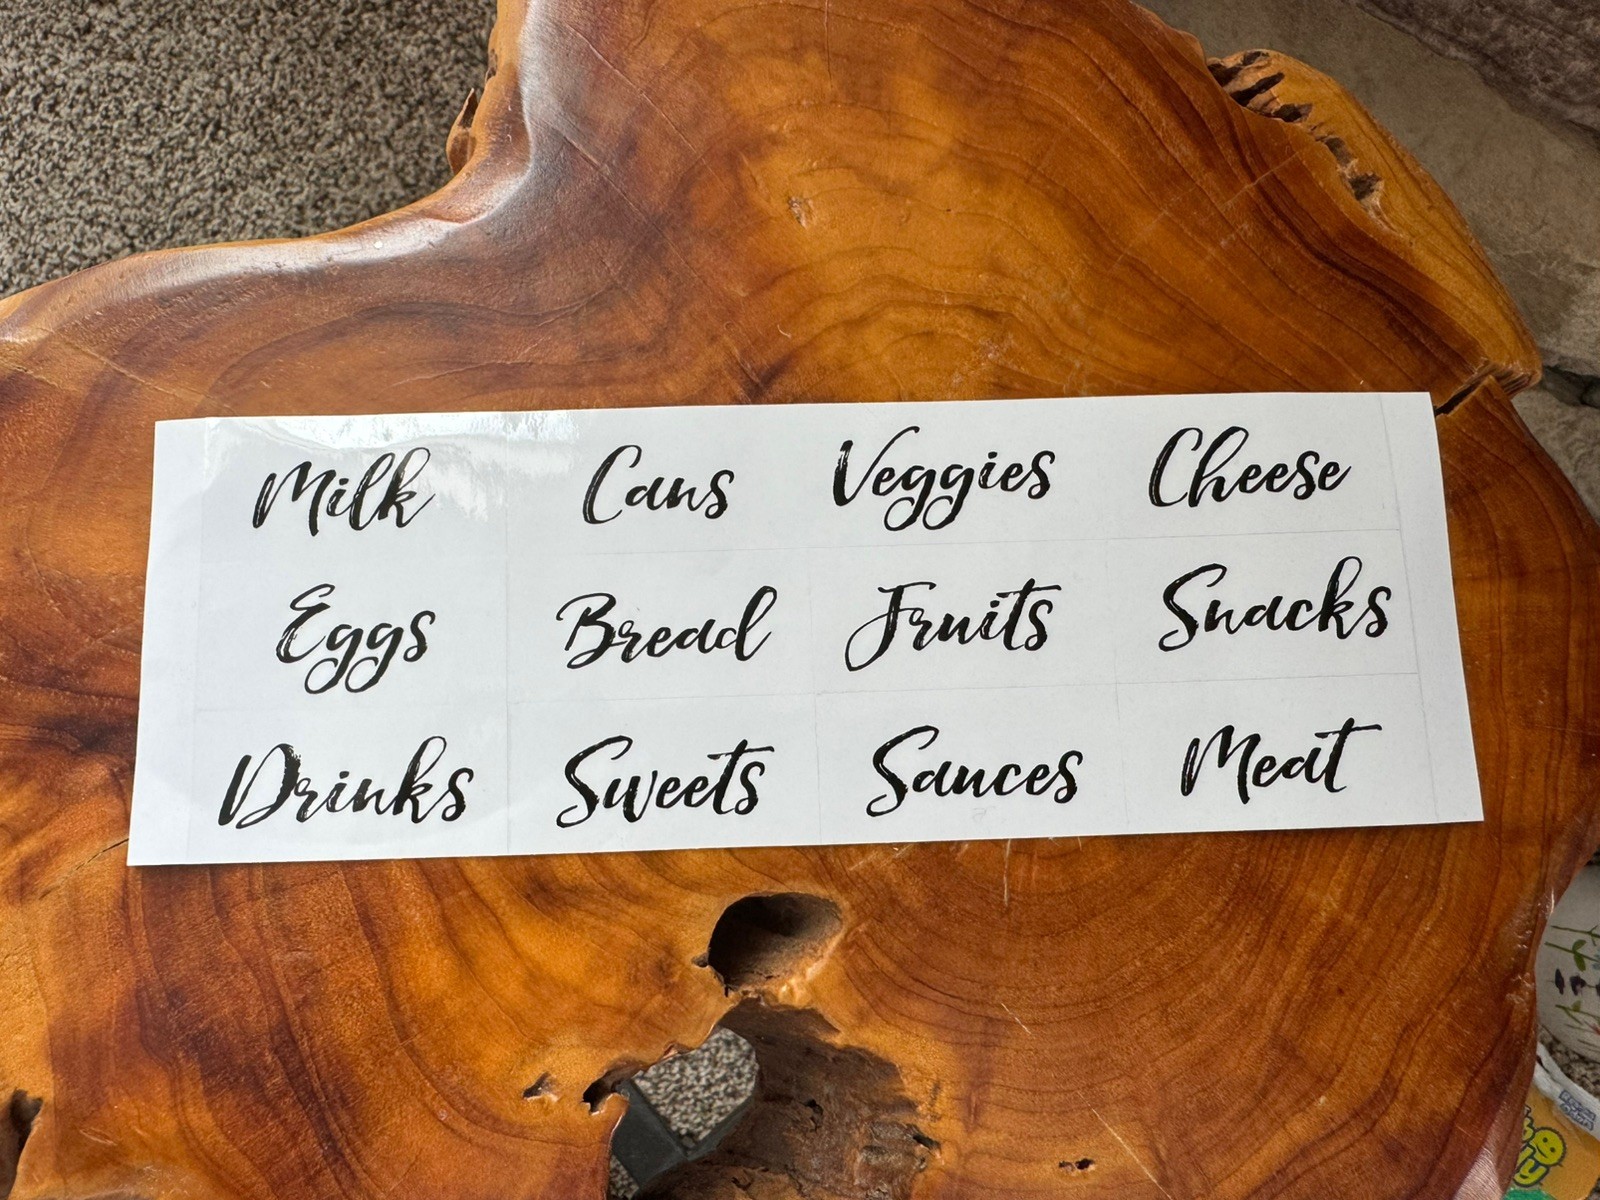 Milk Cans Veggies Cheese
Eggs Bread Fruits Snacks
Drinks Sweets Sauces Meat